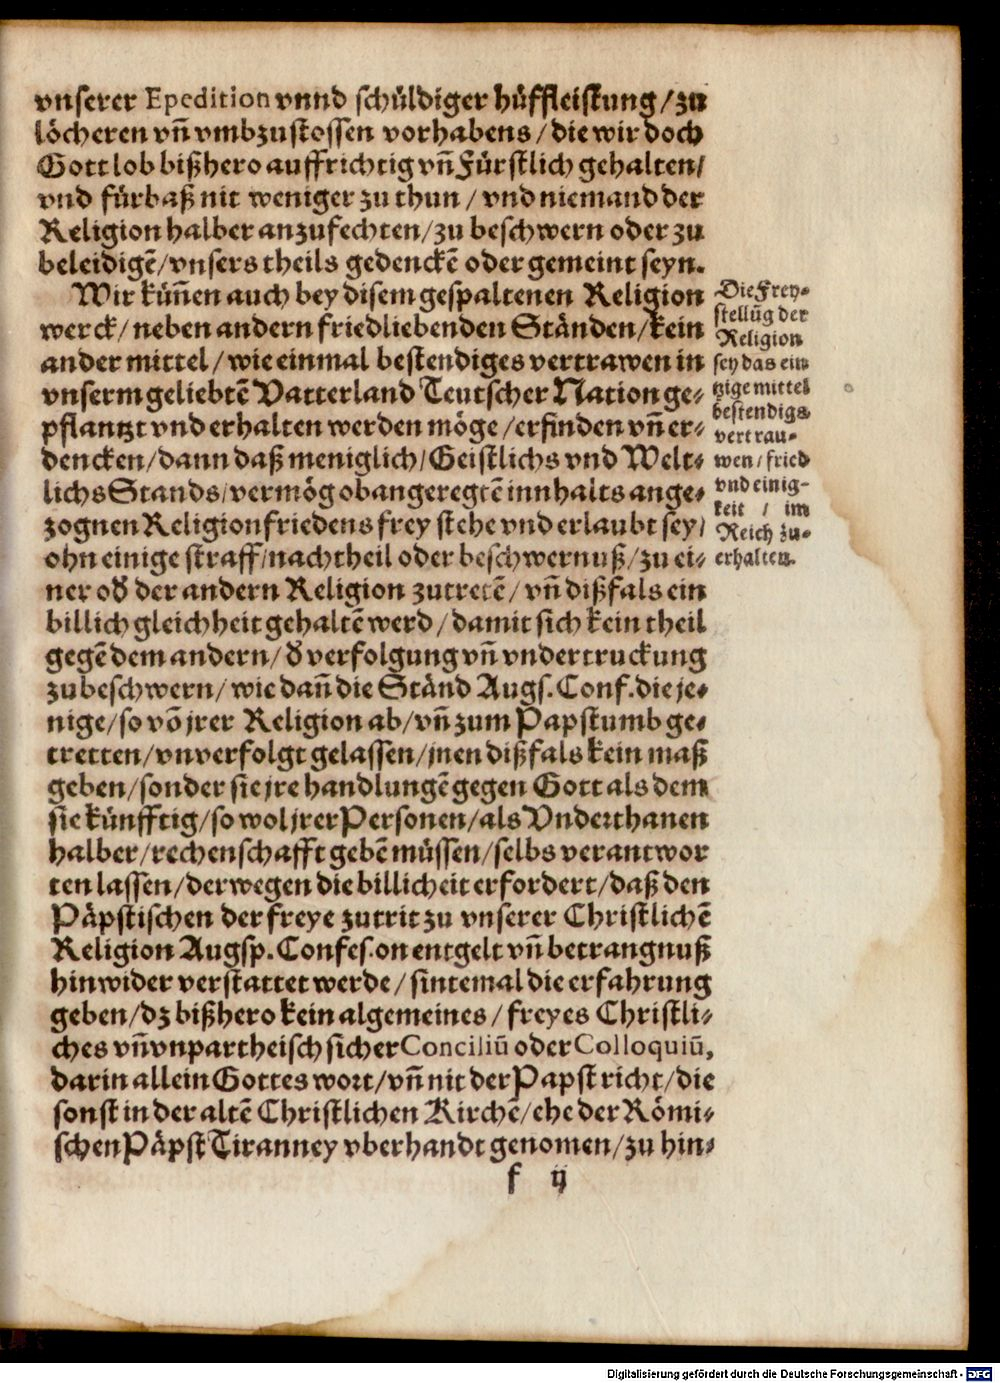 vnserer Epedition vnnd schůldiger hůffleistung/zu
lőcheren vn̄ vmbzustossen vorhabens/die wir doch
Gott lob bißhero auffrichtig vn̄ Fůrstlich gehalten/
vnd fůrbaß nit weniger zu thun/vnd niemand der
Religion halber anzufechten/zu beschwern oder zu
beleidigē/vnsers theils gedenckē oder gemeint seyn.
Wir kůn̄en auch bey disem gespaltenen Religion
werck/neben andern friedliebenden Stånden/kein
ander mittel/wie einmal bestendiges vertrawen in
vnserm geliebtē Vatterland Teutscher Nation ge-
pflantzt vnd erhalten werden möge/erfinden vn̄ er-
dencken/dann daß meniglich/Geistlichs vnd Welt-
lichs Stands/vermög obangeregtē innhalts ange-
zognen Religionfriedens frey stehe vnd erlaubt sey/
ohn einige straff/nachtheil oder beschwernuß/zu ei-
ner od̕ der andern Religion zutretē/vn̄ dißfals ein
billich gleichheit gehaltē werd/damit sich kein theil
gegē dem andern/d̕ verfolgung vn̄ vndertruckung
zubeschwern/wie dan̄ die Stånd Augs. Conf. die je-
nige/so vō jrer Religion ab/vn̄ zum Papstumb ge-
tretten/vnverfolgt gelassen/jnen dißfals kein maß
geben/sonder sie jre handlungē gegen Gott als dem
sie kůnfftig/so wol jrer Personen/als Vnderthanen
halber/rechenschafft gebē můssen/selbs verantwor
ten lassen/derwegen die billicheit erfordert/daß den
Påpstischen der freye zutrit zu vnserer Christlichē
Religion Augsp. Confes. on entgelt vn̄ betrangnuß
hinwider verstattet werde/sintemal die erfahrung
geben/dz bißhero kein algemeines/freyes Christli-
ches vn̄ vnpartheisch sicher Conciliū oder Colloquiū,
darin allein Gottes wort/vn̄ nit der Papst richt/die
sonst in der altē Christlichen Kirchē/ehe der Römi-
schen Påpst Tiranney vberhandt genomen/zu hin-
f ij
Die Frey-
stellūg der
Religion
sey das ein
tzige mittel
bestendigs
vertrau-
wen/fried
vnd einig-
keit / im
Reich zu-
erhalten.
Digitalisierung gefördert durch die Deutsche Forschungsgemeinschaft - DFG